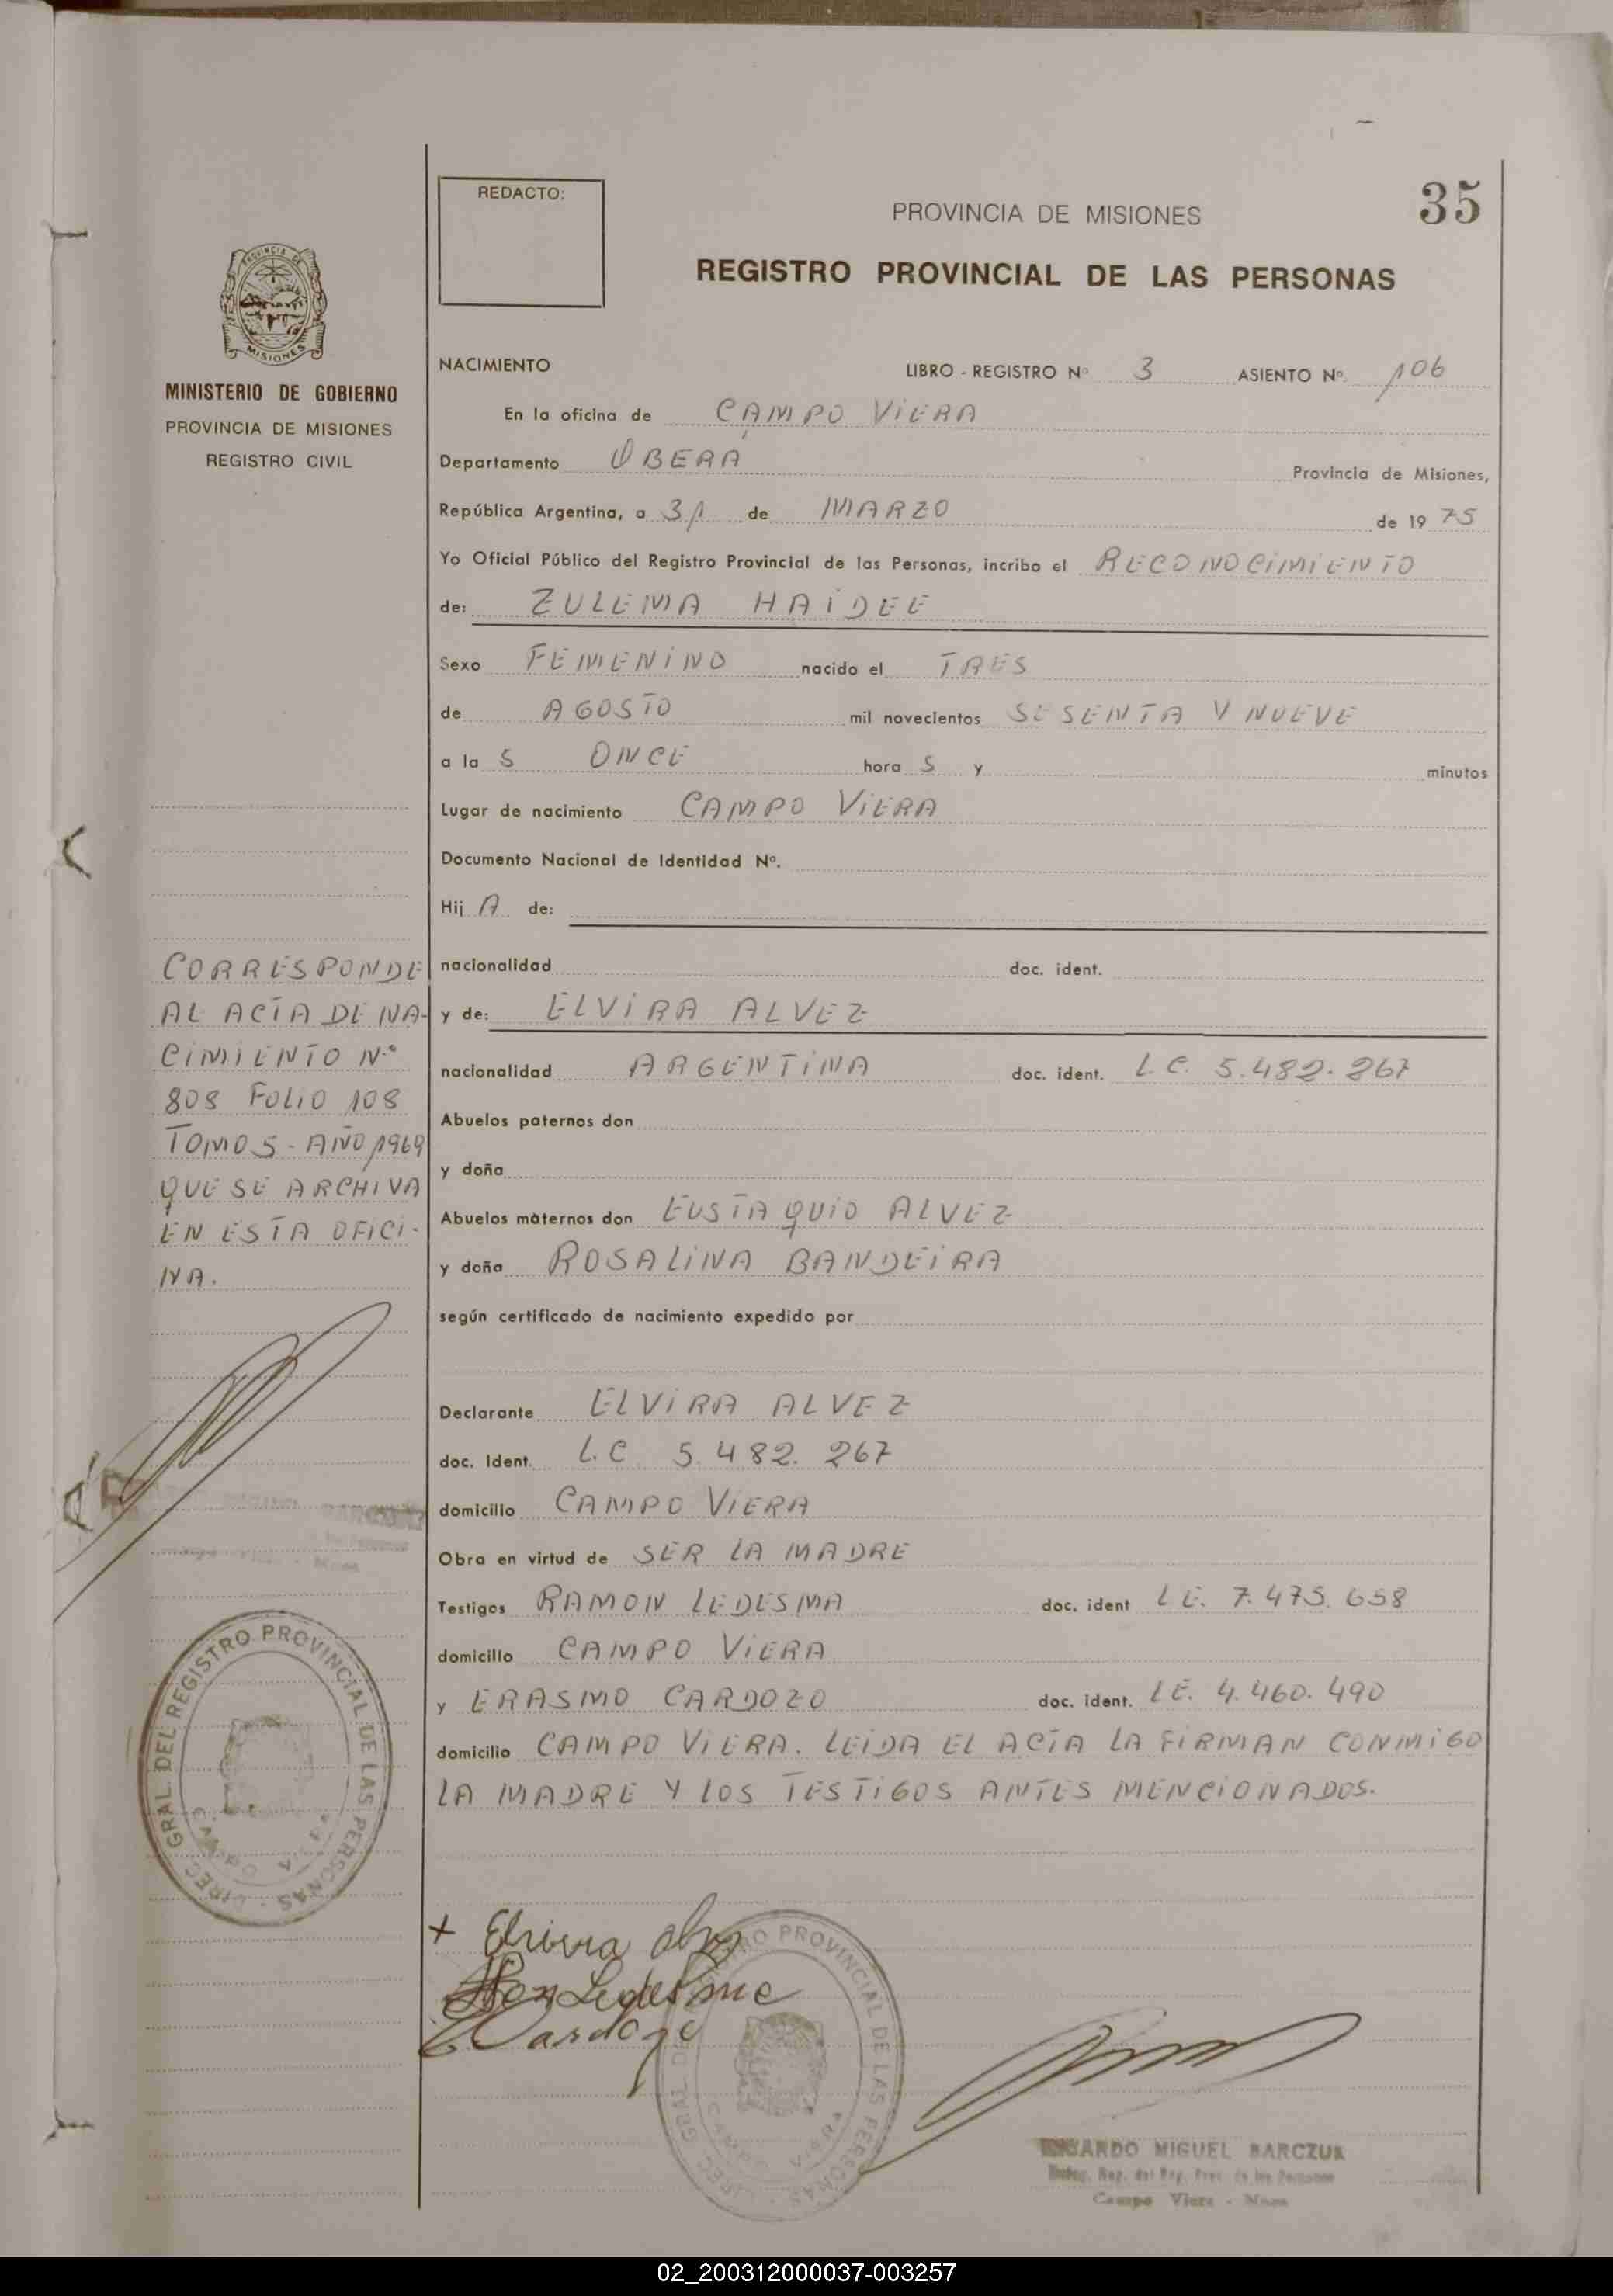 REDACTO:
PROVINCIA DE MISIONES
35
REGISTRO PROVINCIAL DE LAS PERSONAS
PROVINCIA DE
MISIONES
MINISTERIO DE GOBIERNO
PROVINCIA DE MISIONES
REGISTRO CIVIL
NACIMIENTO LIBRO - REGISTRO Nº 3 ASIENTO Nº. 106
En la oficina de CAMPO VIERA
Departamento OBERA Provincia de Misiones,
República Argentina, a 31 de MARZO de 19 75
Yo Oficial Público del Registro Provincial de las Personas, incribo el RECONOCIMIENTO
de: ZULEMA HAIDEE
Sexo FEMENINO nacido el TRES
de AGOSTO mil novecientos SESENTA Y NUEVE
a la S ONCE hora S y minutos
Lugar de nacimiento CAMPO VIERA
Documento Nacional de Identidad Nº.
Hij A de:
nacionalidad doc. ident.
y de: ELVIRA ALVEZ
nacionalidad ARGENTINA doc. ident. L.C. 5.482.267
Abuelos paternos don
y doña
Abuelos maternos don EUSTAQUIO ALVEZ
y doña ROSALINA BANDEIRA
según certificado de nacimiento expedido por
Declarante ELVIRA ALVEZ
doc. Ident. L.C 5.482.267
domicilio CAMPO VIERA
Obra en virtud de SER LA MADRE
Testigos RAMON LEDESMA doc. ident L.E. 7.475.658
domicilio CAMPO VIERA
y ERASMO CARDOZO doc. ident. L.E. 4.460.490
domicilio CAMPO VIERA. LEIDA EL ACTA LA FIRMAN CONMIGO
LA MADRE Y LOS TESTIGOS ANTES MENCIONADOS.
CORRESPONDE
AL ACTA DE NA-
CIMIENTO N.º
808 FOLIO 108
TOMO 5 - AÑO 1969
QUE SE ARCHIVA
EN ESTA OFICI-
NA.
DIREC. GRAL DEL REGISTRO PROVINCIAL DE LAS PERSONAS
CAMPO VIERA
+ Elvira
Ledesma
Cardozo
DIREC. GRAL. PROVINCIAL DE LAS PERSONAS
CAMPO VIERA
RICARDO MIGUEL BARCZUK
Campo Viera - Mnes
02_200312000037-003257